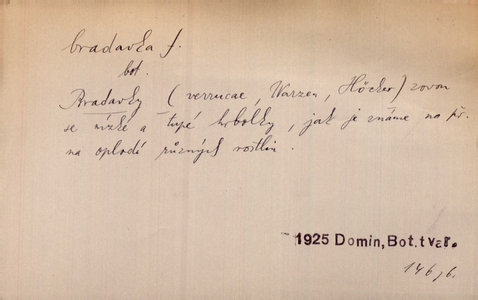 bradavka f.
bot.
Bradavky (verrucae, Warzen, Höcker) zovou
se nízké a tupé hrbolky, jak je známe na př.
na oplodí různých rostlin.
1925 Domin, Bot. tvar.
146/6.